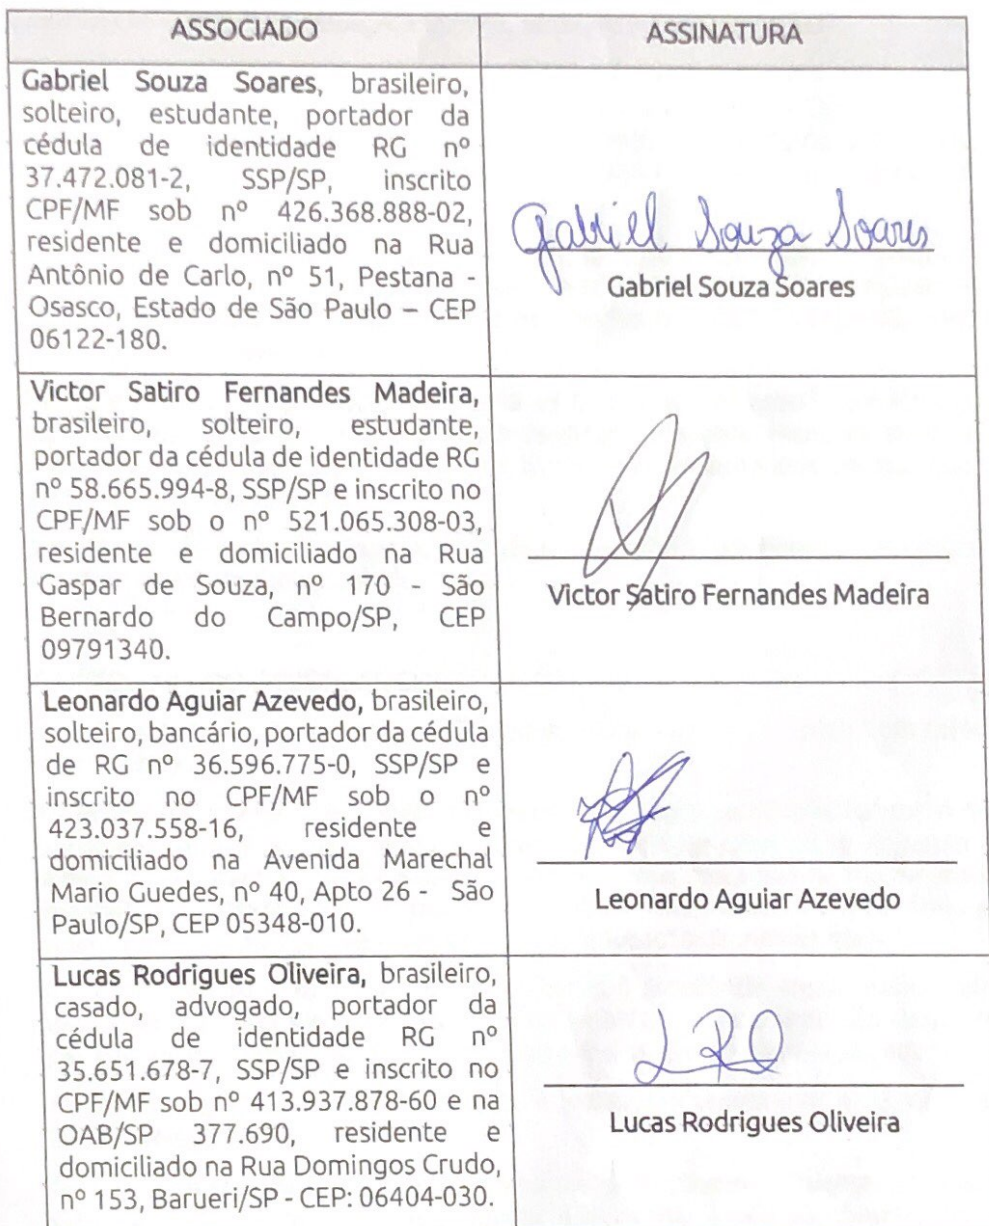 ASSOCIADO
ASSINATURA
Gabriel Souza Soares, brasileiro,
solteiro, estudante, portador da
cédula de identidade RG nº
37.472.081-2, SSP/SP, inscrito
CPF/MF sob nº 426.368.888-02,
residente e domiciliado na Rua
Antônio de Carlo, nº 51, Pestana -
Osasco, Estado de São Paulo – CEP
06122-180.
Gabriel Souza Soares
Gabriel Souza Soares
Victor Satiro Fernandes Madeira,
brasileiro, solteiro, estudante,
portador da cédula de identidade RG
nº 58.665.994-8, SSP/SP e inscrito no
CPF/MF sob o nº 521.065.308-03,
residente e domiciliado na Rua
Gaspar de Souza, nº 170 - São
Bernardo do Campo/SP, CEP
09791340.
Victor Satiro Fernandes Madeira
Leonardo Aguiar Azevedo, brasileiro,
solteiro, bancário, portador da cédula
de RG nº 36.596.775-0, SSP/SP e
inscrito no CPF/MF sob o nº
423.037.558-16, residente e
domiciliado na Avenida Marechal
Mario Guedes, nº 40, Apto 26 - São
Paulo/SP, CEP 05348-010.
Leonardo Aguiar Azevedo
Lucas Rodrigues Oliveira, brasileiro,
casado, advogado, portador da
cédula de identidade RG nº
35.651.678-7, SSP/SP e inscrito no
CPF/MF sob nº 413.937.878-60 e na
OAB/SP 377.690, residente e
domiciliado na Rua Domingos Crudo,
nº 153, Barueri/SP - CEP: 06404-030.
Lucas Rodrigues Oliveira